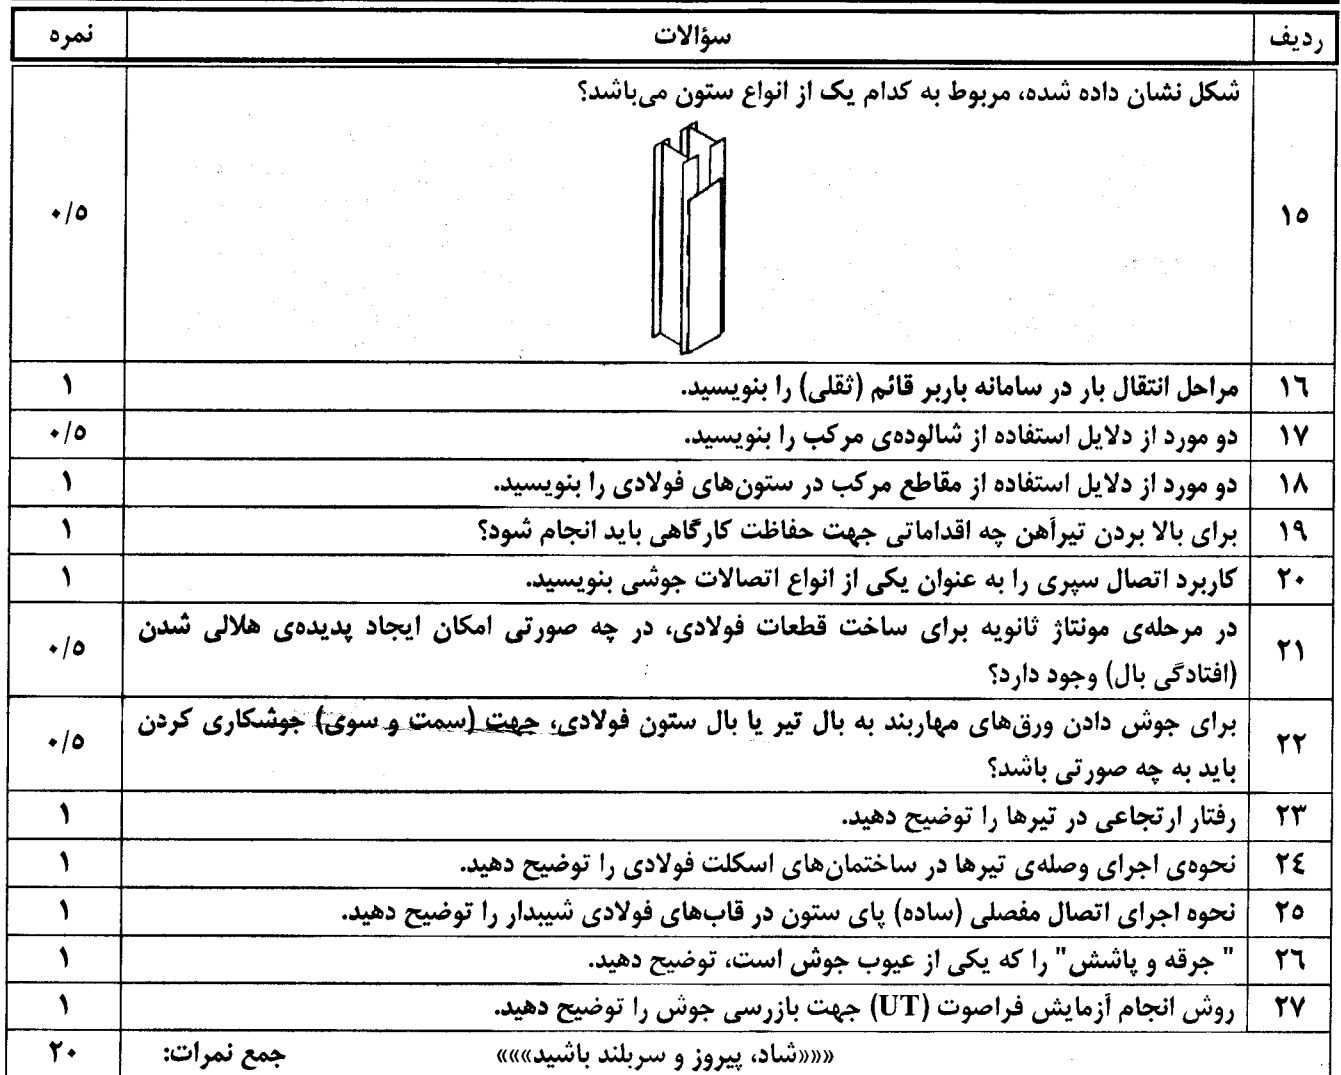 ردیف سؤالات نمره
۱۵ شکل نشان داده شده، مربوط به کدام یک از انواع ستون می‌باشد؟ ۰/۵
۱۶ مراحل انتقال بار در سامانه باربر قائم (ثقلی) را بنویسید. ۱
۱۷ دو مورد از دلایل استفاده از شالوده‌ی مرکب را بنویسید. ۰/۵
۱۸ دو مورد از دلایل استفاده از مقاطع مرکب در ستون‌های فولادی را بنویسید. ۱
۱۹ برای بالا بردن تیرآهن چه اقداماتی جهت حفاظت کارگاهی باید انجام شود؟ ۱
۲۰ کاربرد اتصال سپری را به عنوان یکی از انواع اتصالات جوشی بنویسید. ۱
۲۱ در مرحله‌ی مونتاژ ثانویه برای ساخت قطعات فولادی، در چه صورتی امکان ایجاد پدیده‌ی هلالی شدن ۰/۵
(افتادگی بال) وجود دارد؟
۲۲ برای جوش دادن ورق‌های مهاربند به بال تیر یا بال ستون فولادی، جهت (سمت و سوی) جوشکاری کردن ۰/۵
باید به چه صورتی باشد؟
۲۳ رفتار ارتجاعی در تیرها را توضیح دهید. ۱
۲۴ نحوه‌ی اجرای وصله‌ی تیرها در ساختمان‌های اسکلت فولادی را توضیح دهید. ۱
۲۵ نحوه اجرای اتصال مفصلی (ساده) پای ستون در قاب‌های فولادی شیبدار را توضیح دهید. ۱
۲۶ " جرقه و پاشش" را که یکی از عیوب جوش است، توضیح دهید. ۱
۲۷ روش انجام آزمایش فراصوت (UT) جهت بازرسی جوش را توضیح دهید. ۱
«««شاد، پیروز و سربلند باشید»»» جمع نمرات: ۲۰